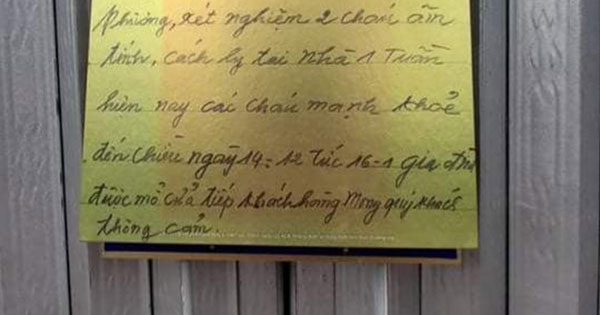 phường, xét nghiệm 2 cháu âm
tính, cách ly tại nhà 1 Tuần
hiện nay các cháu mạnh khoẻ
đến chiều ngày 14-12 tức 16-1 gia đình
được mở cửa tiếp khách hàng Mong quý khách
thông cảm.